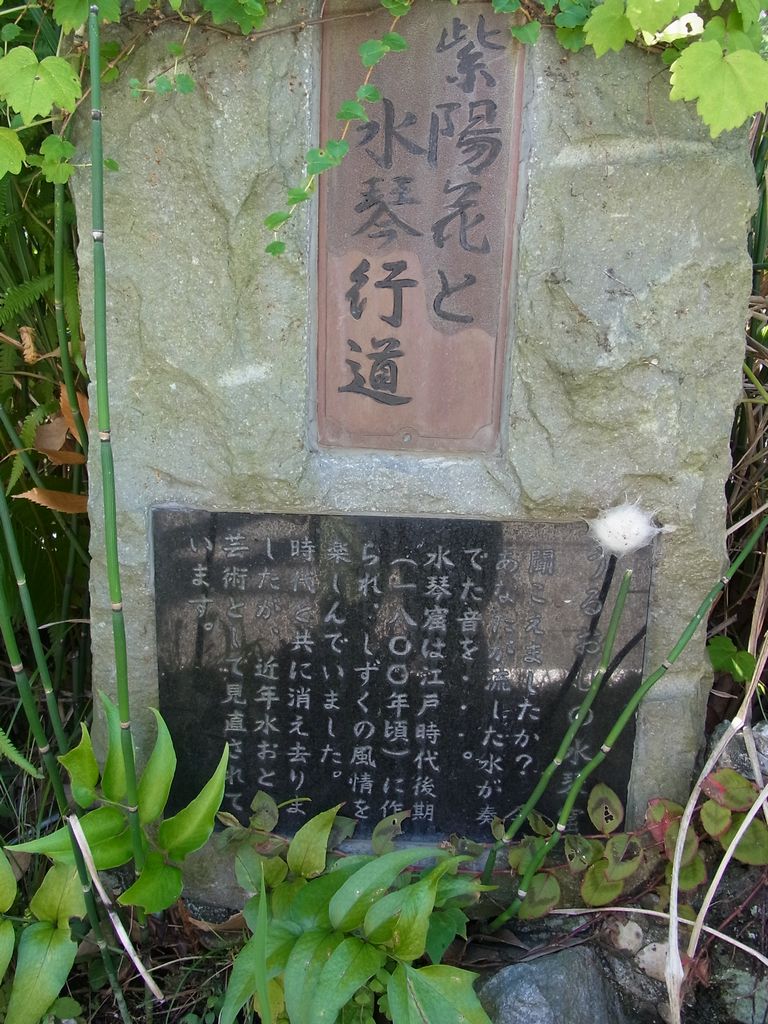 紫陽花と
水琴行道
うるおしの水琴窟
聞こえましたか?
あなたが流した水が奏
でた音を・・・。
水琴窟は江戸時代後期
(一八〇〇年頃)に作
られ、しずくの風情を
楽しんでいました。
時代と共に消え去りま
したが、近年水おと
芸術として見直されて
います。